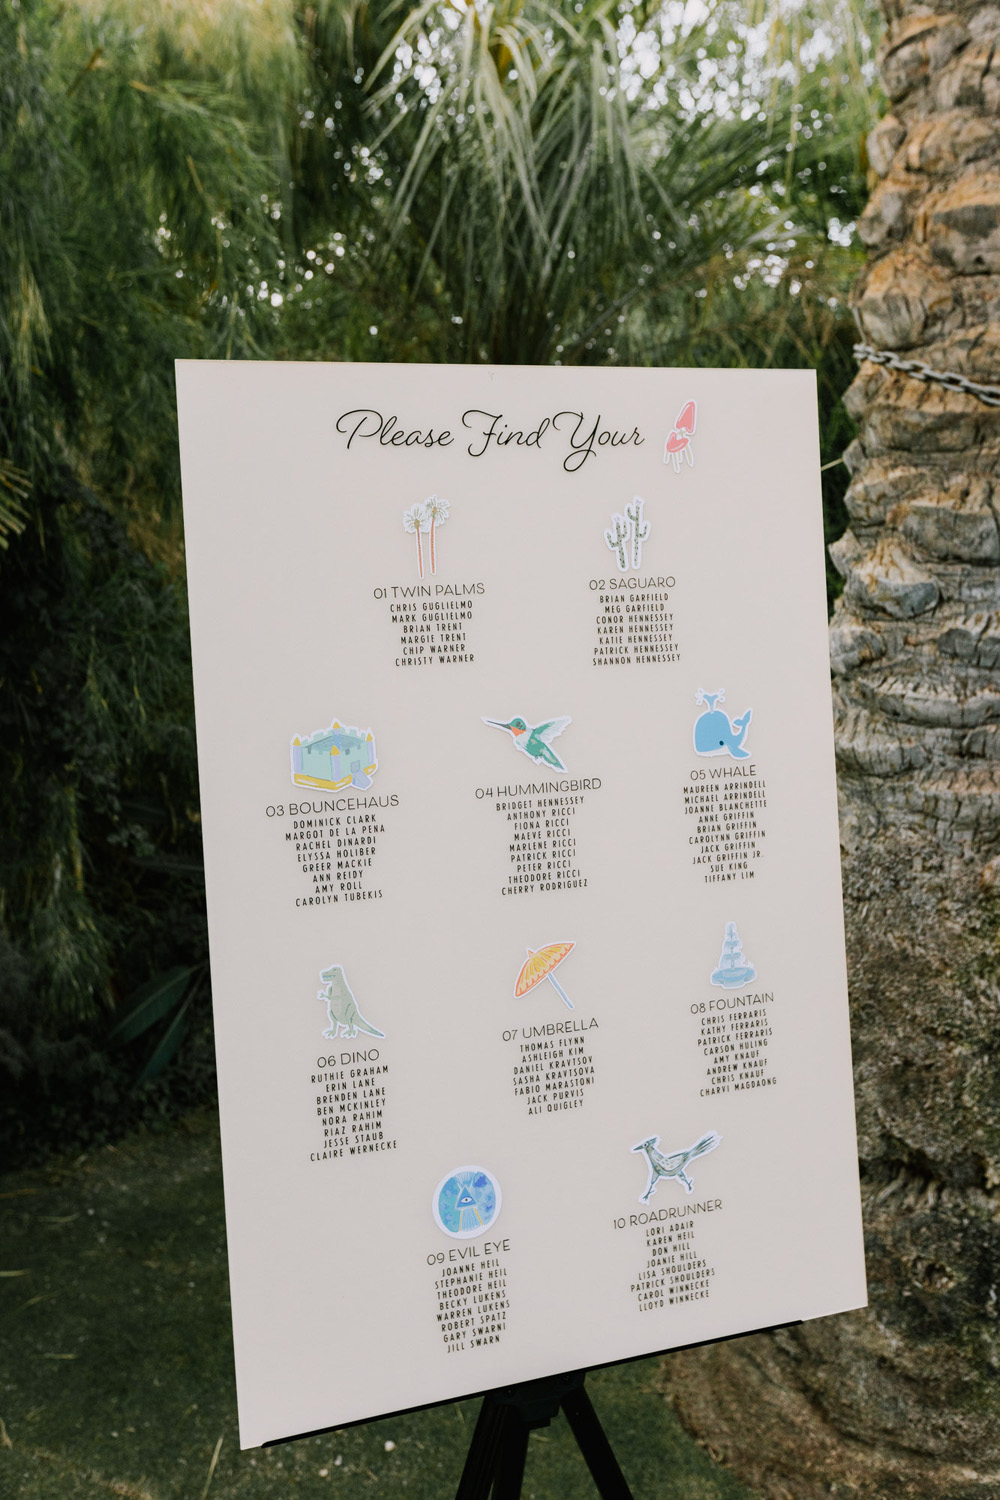 Please Find Your
01 TWIN PALMS
CHRIS GUGLIELMO
MARK GUGLIELMO
BRIAN TRENT
MARGIE TRENT
CHIP WARNER
CHRISTY WARNER
02 SAGUARO
BRIAN GARFIELD
MEG GARFIELD
CONOR HENNESSEY
KAREN HENNESSEY
KATIE HENNESSEY
PATRICK HENNESSEY
SHANNON HENNESSEY
03 BOUNCEHAUS
DOMINICK CLARK
MARGOT DE LA PENA
RACHEL DINARDI
ELYSSA HOLIBER
GREER MACKIE
ANN REIDY
AMY ROLL
CAROLYN TUBEKIS
04 HUMMINGBIRD
BRIDGET HENNESSEY
ANTHONY RICCI
FIONA RICCI
MAEVE RICCI
MARLENE RICCI
PATRICK RICCI
PETER RICCI
THEODORE RICCI
CHERRY RODRIGUEZ
05 WHALE
MAUREEN ARRINDELL
MICHAEL ARRINDELL
JOANNE BLANCHETTE
ANNE GRIFFIN
BRIAN GRIFFIN
CAROLYNN GRIFFIN
JACK GRIFFIN
JACK GRIFFIN JR.
SUE KING
TIFFANY LIM
06 DINO
RUTHIE GRAHAM
ERIN LANE
BRENDEN LANE
BEN MCKINLEY
NORA RAHIM
RIAZ RAHIM
JESSE STAUB
CLAIRE WERNECKE
07 UMBRELLA
THOMAS FLYNN
ASHLEIGH KIM
DANIEL KRAVTSOV
SASHA KRAVTSOVA
FABIO MARASTONI
JACK PURVIS
ALI QUIGLEY
08 FOUNTAIN
CHRIS FERRARIS
KATHY FERRARIS
PATRICK FERRARIS
CARSON HULING
AMY KNAUF
ANDREW KNAUF
CHRIS KNAUF
CHARVI MAGDAONG
09 EVIL EYE
JOANNE HEIL
STEPHANIE HEIL
THEODORE HEIL
BECKY LUKENS
WARREN LUKENS
ROBERT SPATZ
GARY SWARNI
JILL SWARN
10 ROADRUNNER
LORI ADAIR
KAREN HEIL
DON HILL
JOANIE HILL
LISA SHOULDERS
PATRICK SHOULDERS
CAROL WINNECKE
LLOYD WINNECKE